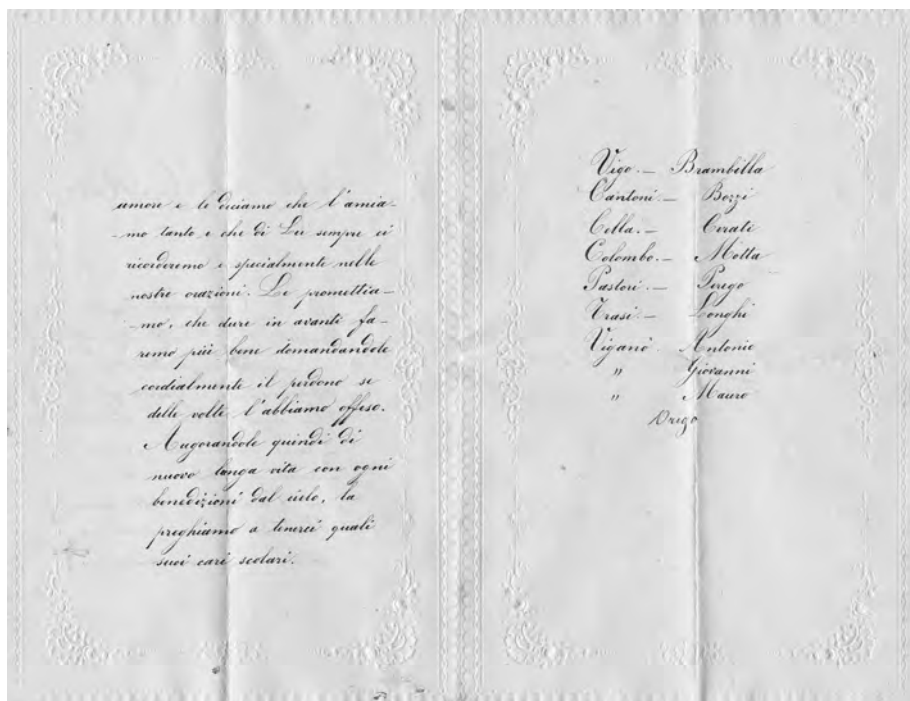 amore e le diciamo che l'amia-
-mo tanto e che di Lei sempre ci
ricorderemo e specialmente nelle
nostre orazioni. Le promettia-
-mo, che dure in avanti fa-
remo più bene domandandole
cordialmente il perdono se
delle volte l'abbiamo offeso.
Augorandole quindi di
nuovo longa vita con ogni
benedizioni dal cielo, la
preghiamo a tenerci quali
suoi cari scolari.
Vigo. — Brambilla
Cantoni. — Bozzi
Cella. — Cerati
Colombo. — Motta
Pastori. — Perego
Trasi. — Longhi
Viganò. Antonio
" Giovanni
" Mauro
Origo